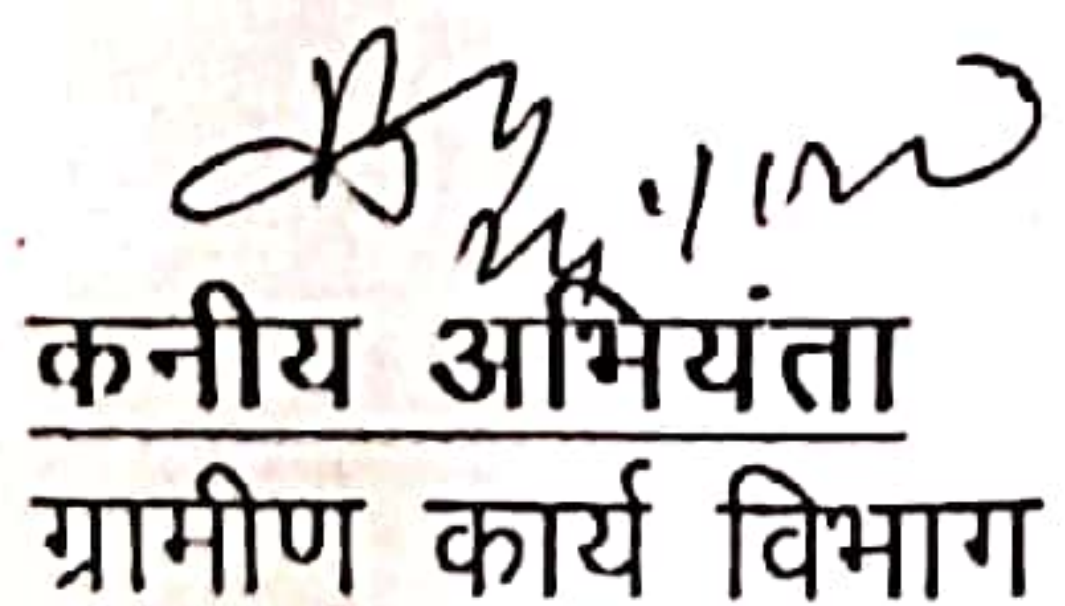 कनीय अभियंता
ग्रामीण कार्य विभाग